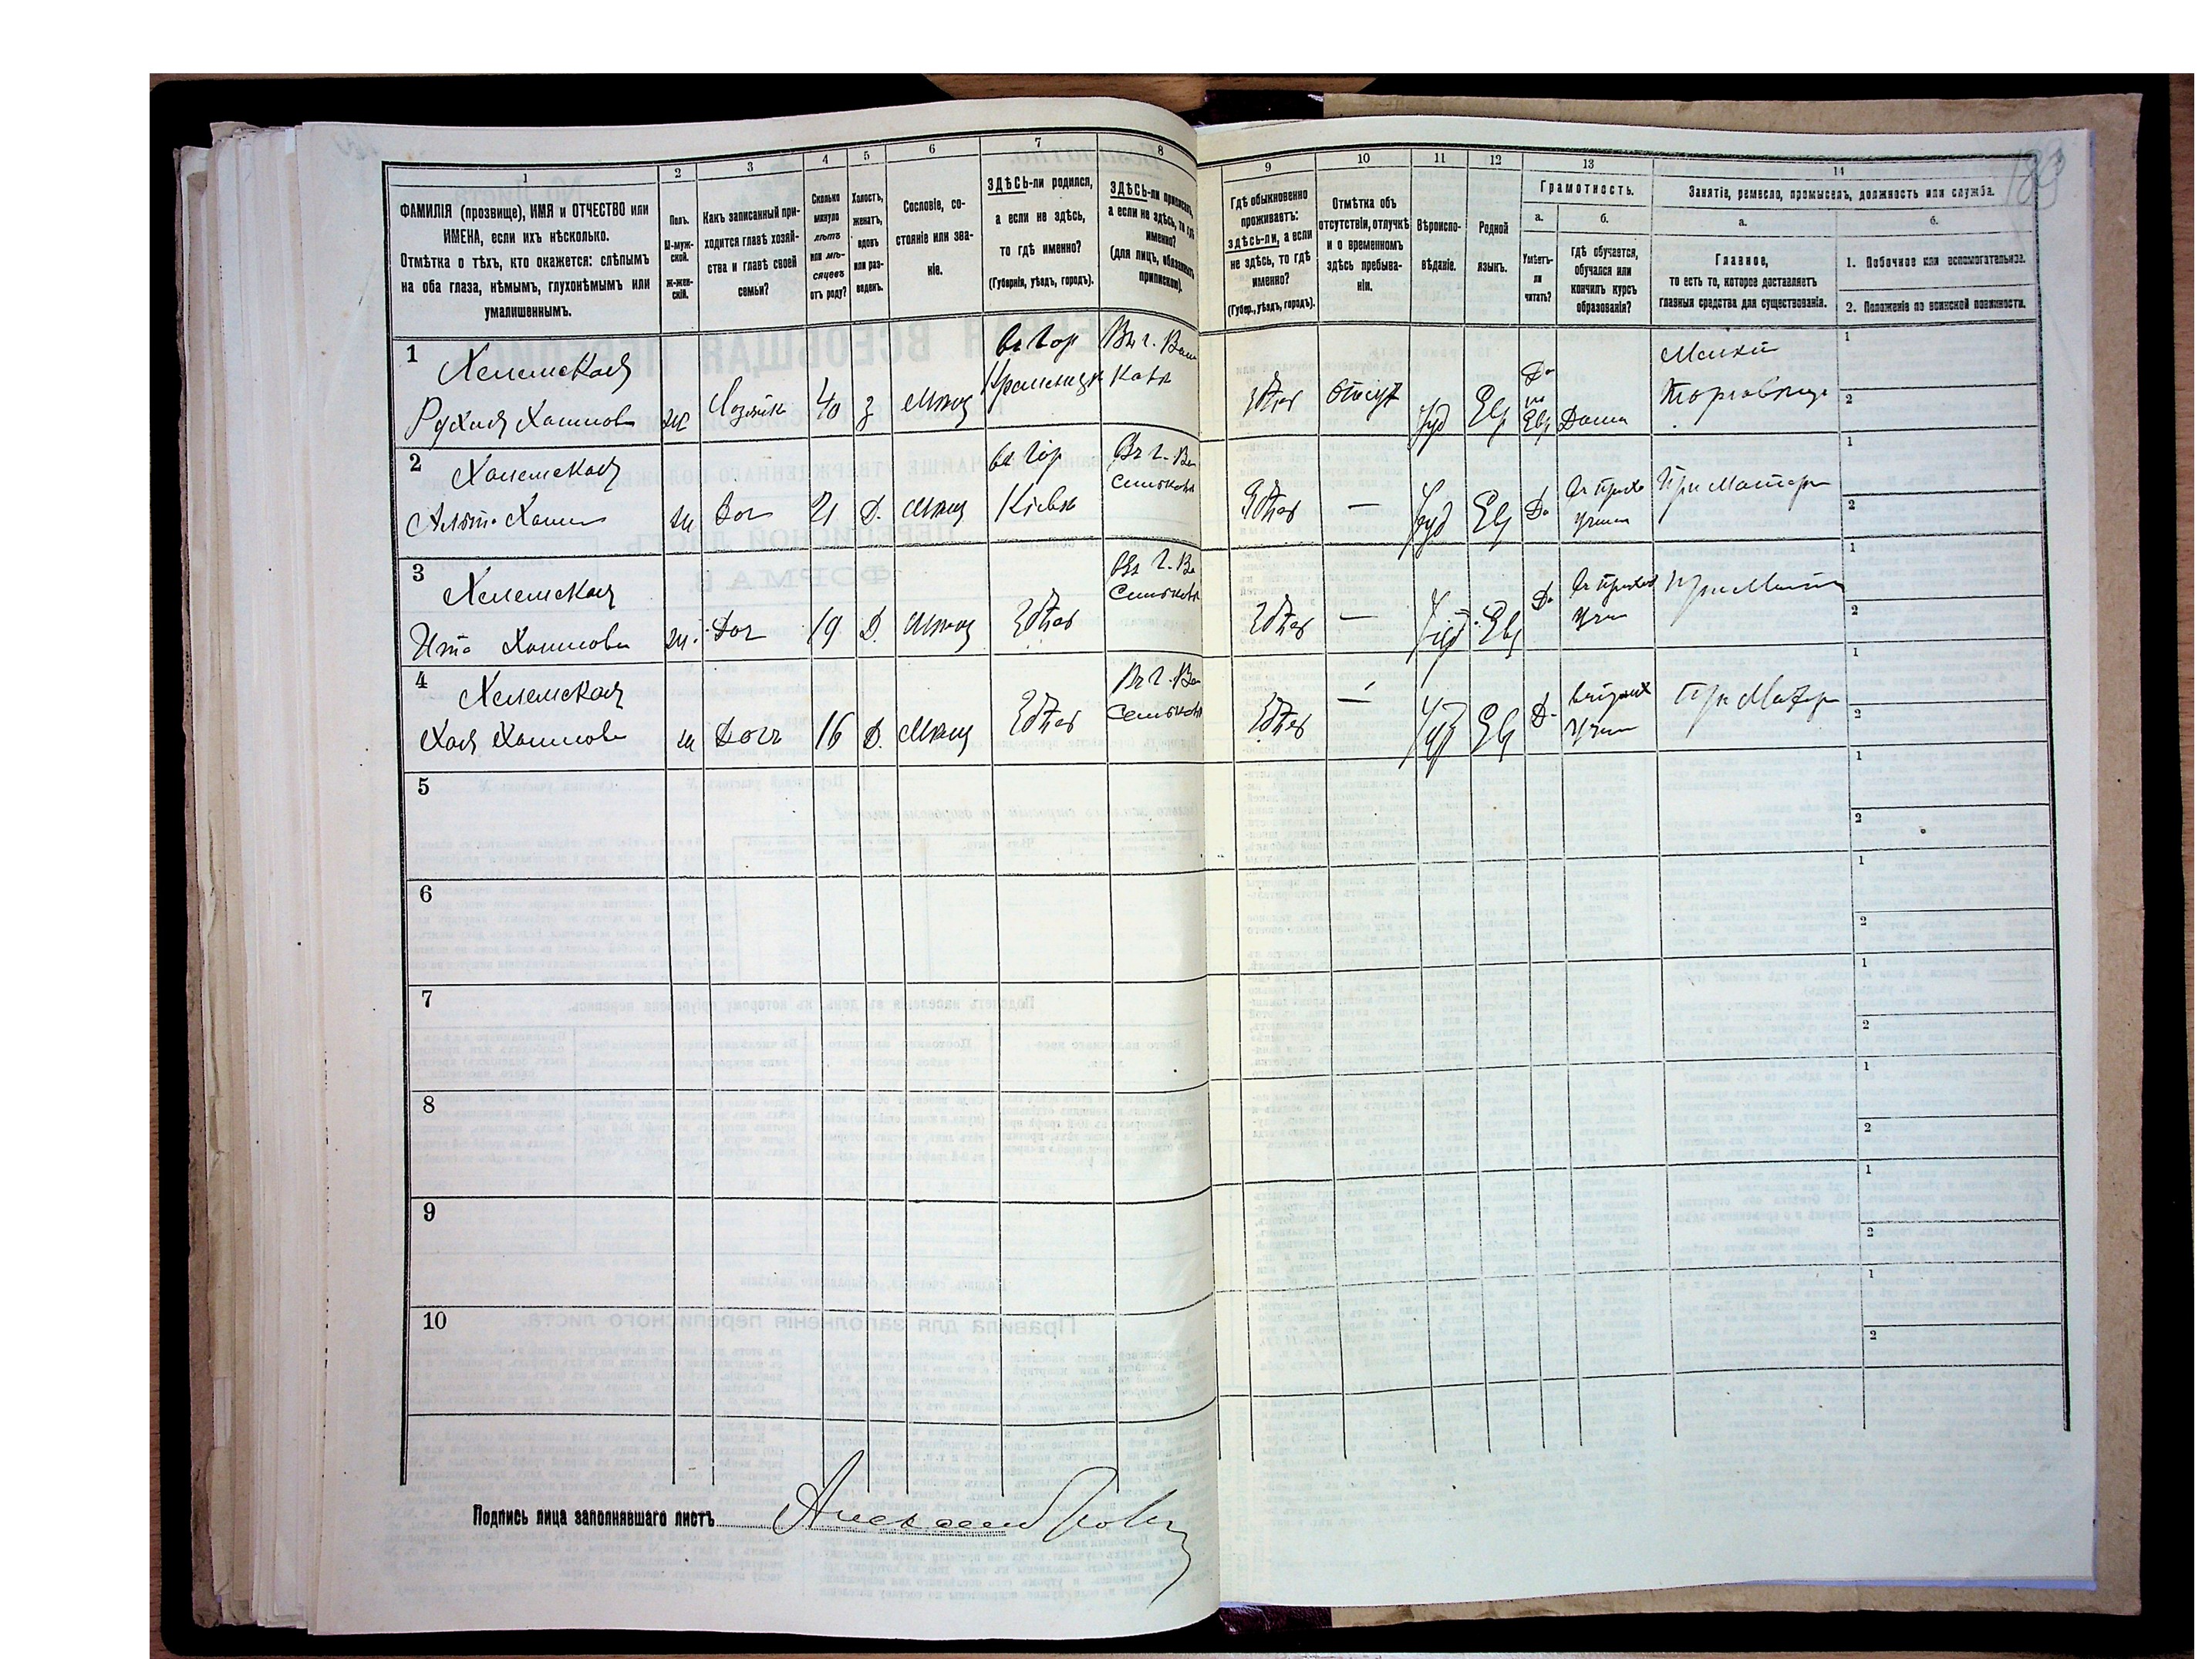 1
2
3
4
5
6
7
8
ФАМИЛІЯ (прозвище), ИМЯ и ОТЧЕСТВО или
ИМЕНА, если ихъ нѣсколько.
Отмѣтка о тѣхъ, кто окажется: слѣпымъ
на оба глаза, нѣмымъ, глухонѣмымъ или
умалишеннымъ.
Полъ.
М-муж-
ской.
Ж-жен-
скій.
Какъ записанный при-
ходится главѣ хозяй-
ства и главѣ своей
семьи?
Сколько
минуло
лѣтъ
или мѣ-
сяцевъ
отъ роду?
Холостъ,
женатъ,
вдовъ
или раз-
веденъ.
Сословіе, со-
стояніе или зва-
ніе.
ЗДѢСЬ-ли родился,
а если не здѣсь,
то гдѣ именно?
(Губернія, уѣздъ, городъ).
ЗДѢСЬ-ли приписанъ,
а если не здѣсь, то гдѣ
именно?
(для лицъ, обязанныхъ
припискою).
9
10
11
12
13
14
Гдѣ обыкновенно
проживаетъ:
здѣсь-ли, а если
не здѣсь, то гдѣ
именно?
(Губер., уѣздъ, городъ).
Отмѣтка объ
отсутствіи, отлучкѣ
и о временномъ
здѣсь пребыва-
ніи.
Вѣроиспо-
вѣданіе.
Родной
языкъ.
Грамотность.
а.
Умѣетъ-
ли
читать?
б.
гдѣ обучается,
обучался или
кончилъ курсъ
образованія?
Занятіе, ремесло, промыселъ, должность или служба.
а.
Главное,
то есть то, которое доставляетъ
главныя средства для существованія.
б.
1. Побочное или вспомогательное.
2. Положеніе по воинской повинности.
1
Хелемская
Рухля Хаимов
ж
Хозяйк
40
з
Мѣщ
въ гор
Кременцѣ
Въ г. Васи
ковъ
Здѣсь
отсут
Іуд
Евр
Да
по
Евр
Дома
Мелкая
Торговля
1
2
2
Хелемская
Хаим
ж
Доч
21
Д.
Мѣщ
въ гор
Кіевъ
Въ г. Ва
сильковъ
Здѣсь
—
Іуд
Евр
Да
Въ приход
Учил
При Матери
1
2
3
Хелемская
Ита Хаимова
ж.
Доч
19
Д.
Мѣщ
Здѣсь
Въ г. Ва
сильковъ
Здѣсь
—
Іуд
Евр
Да
Въ приход
Учил
При Мат
1
2
4
Хелемская
Хая Хаимова
ж
Дочь
16
Д.
Мѣщ
Здѣсь
Въ г. Ва
сильковъ
Здѣсь
—
Іуд
Евр
Да
Въ приход
Учил
При Матер
1
2
5
1
2
6
1
2
7
1
2
8
1
2
9
1
2
10
1
2
Подпись лица заполнявшаго листъ